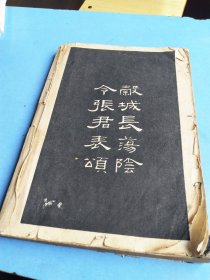 穀城長蕩陰
令張君表頌